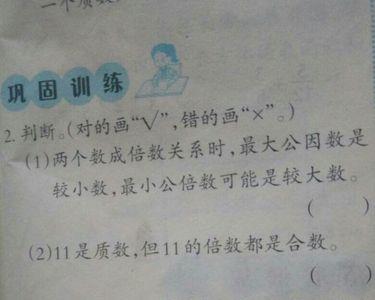 一个质数
巩固训练
2. 判断。(对的画“√”,错的画“×”。)
(1)两个数成倍数关系时,最大公因数是
较小数,最小公倍数可能是较大数。
( )
(2)11是质数,但11的倍数都是合数。
( )